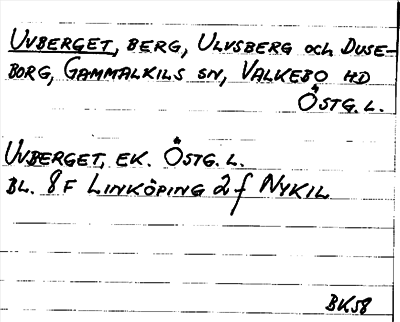 UVBERGET, BERG, ULVSBERG och DUSE-
BORG, GAMMALKILS SN, VALKEBO HD
ÖSTG. L.
UVBERGET, EK. ÖSTG. L.
BL. 8F LINKÖPING 2f NYKIL
BK58